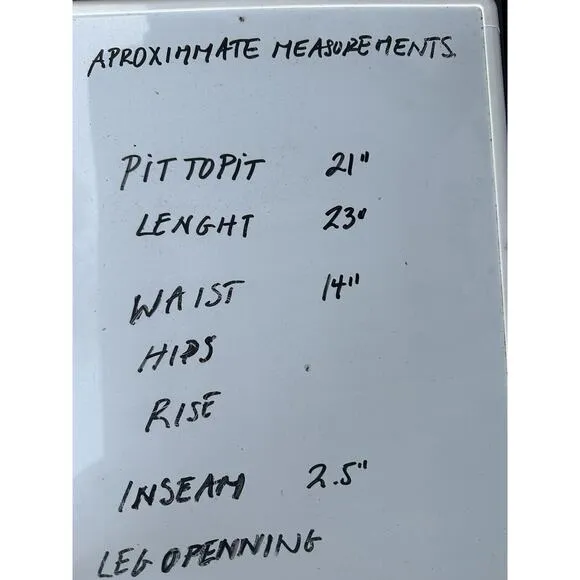 APROXIMMATE MEASUREMENTS.
PIT TO PIT 21"
LENGHT 23"
WAIST 14"
HIPS
RISE
INSEAM 2.5"
LEG OPENNING